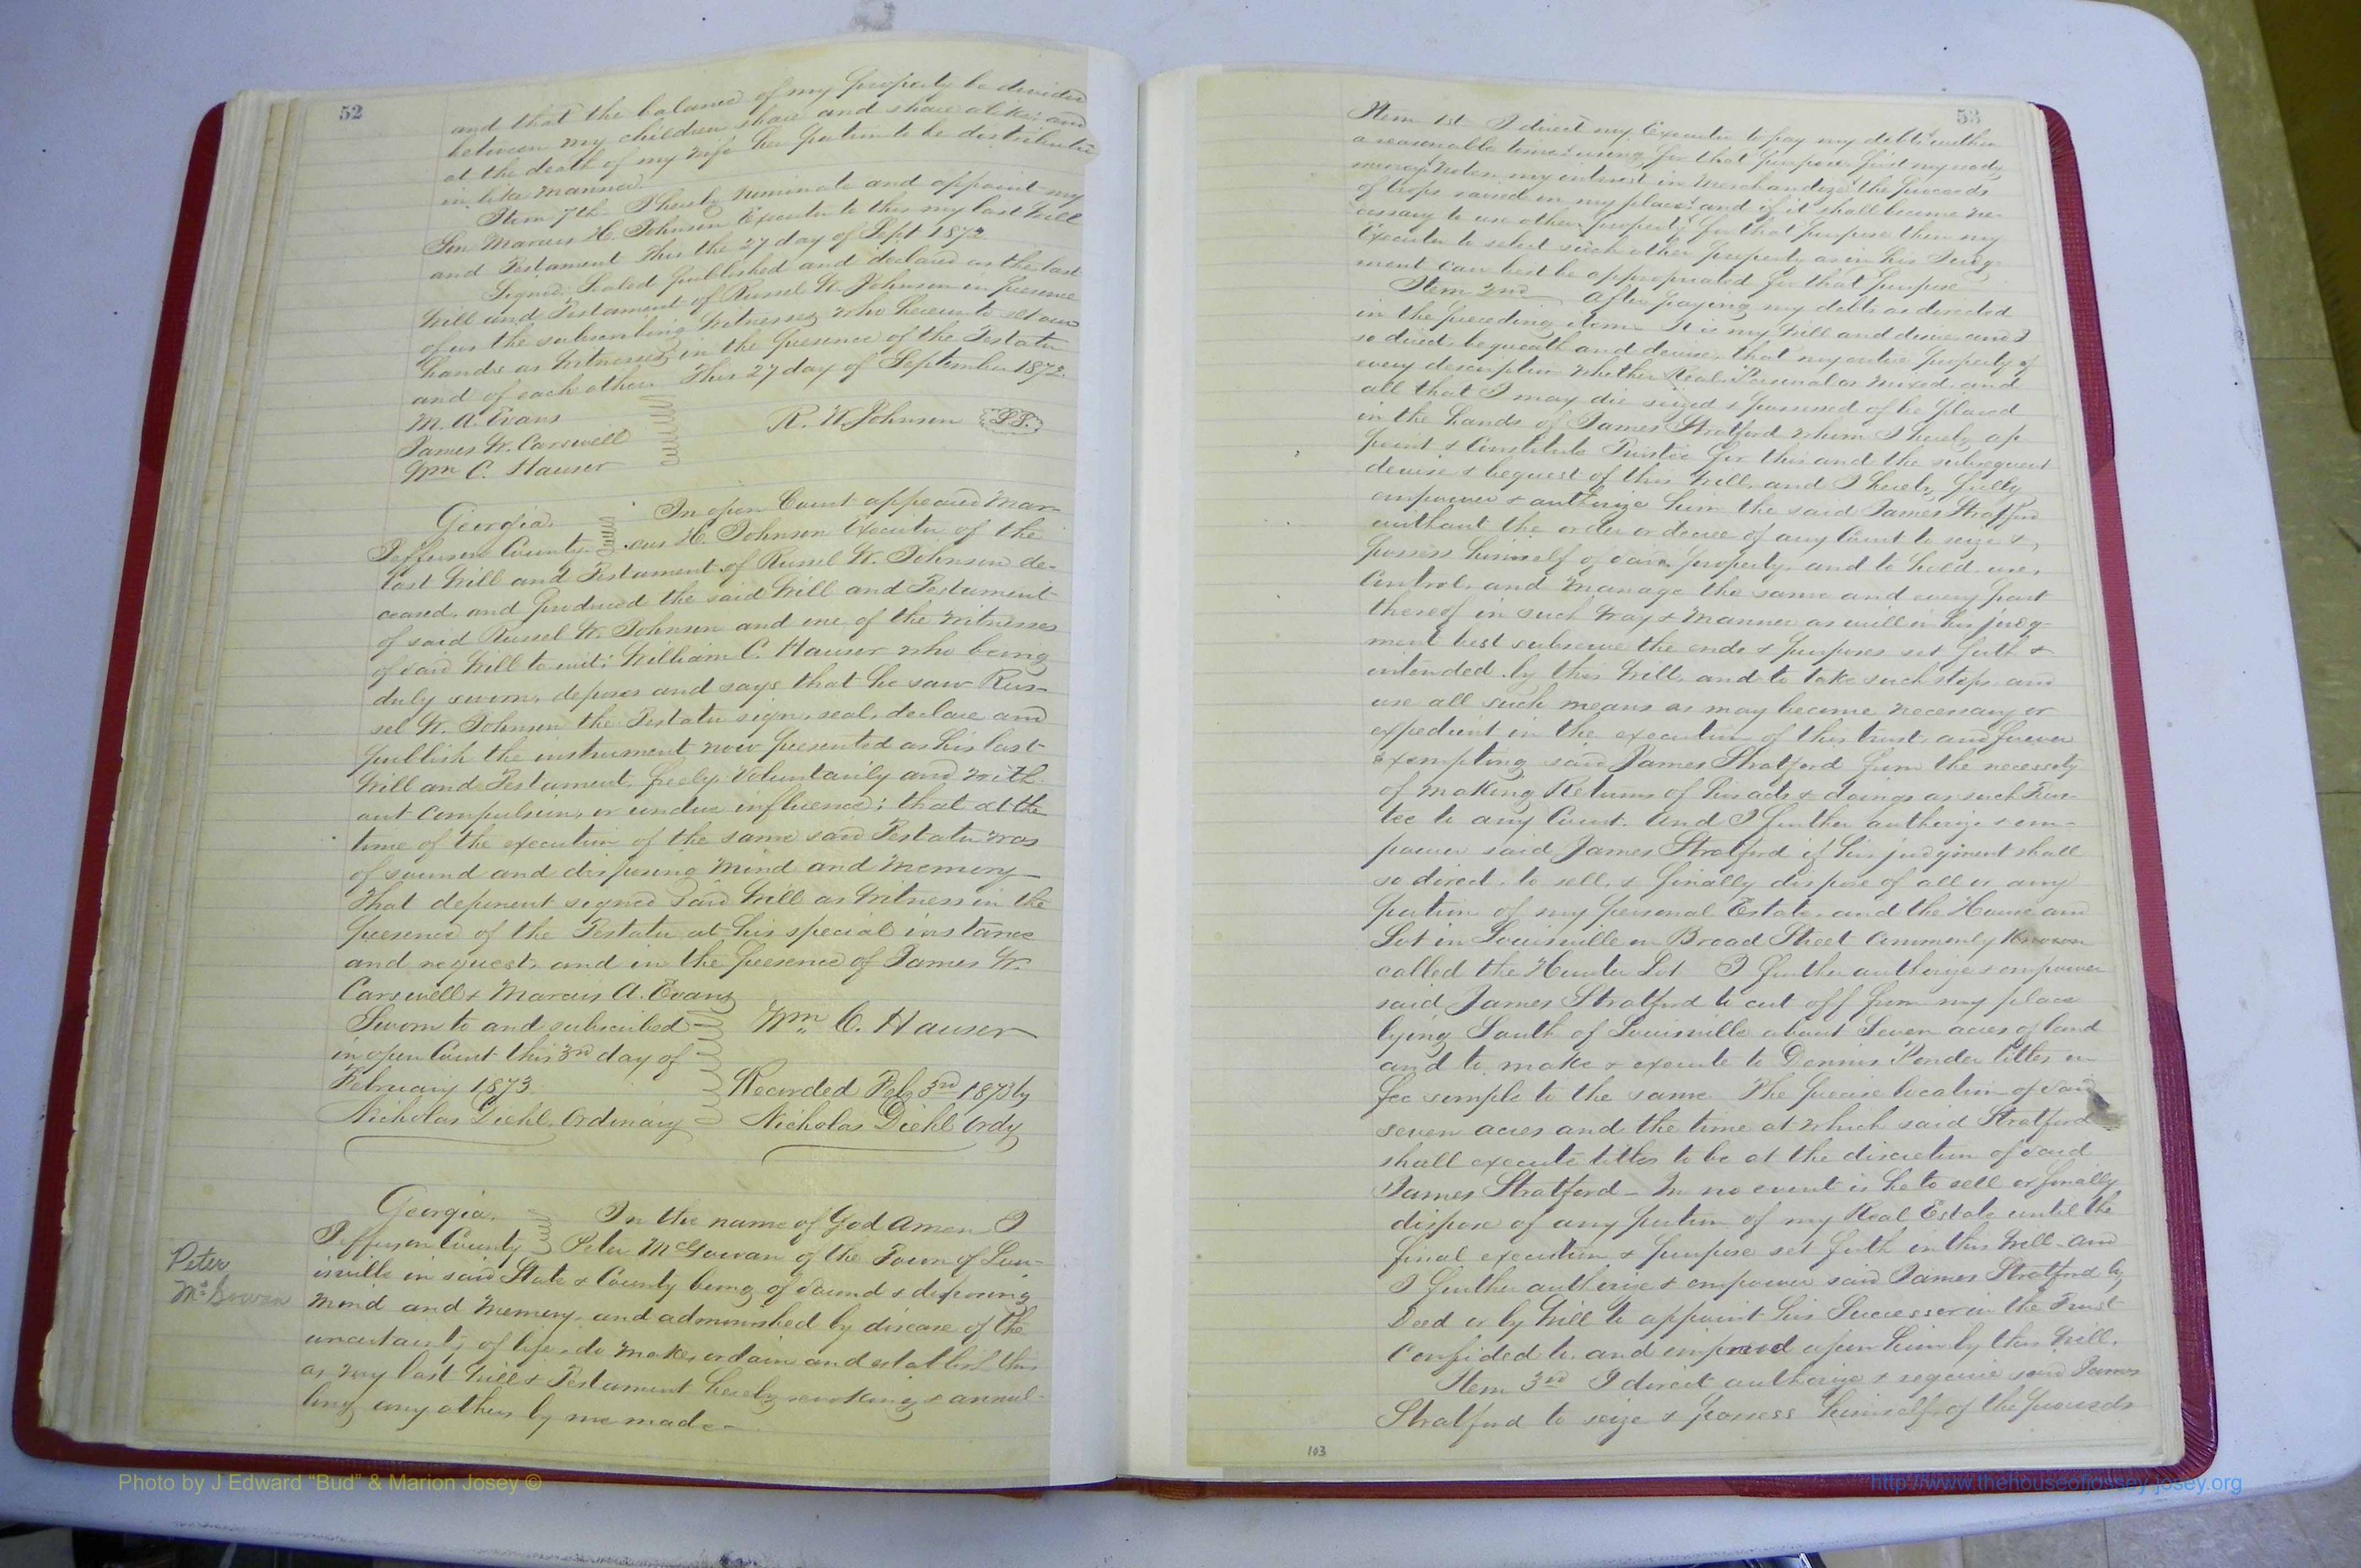 52
and that the balance of my property be divided
between my children share and share alike; and
at the death of my wife her portion to be distributed
in like manner.
Item 7th I hereby nominate and appoint my
Son Marcus H. Johnson Executor to this my last Will
and Testament This the 27 day of Sept 1872
Signed Sealed published and declared as the last
Will and Testament of Russel W. Johnson in presence
of us the subscribing Witnesses who hereunto set our
hands as Witnesses in the presence of the Testator
and of each other This 27 day of September 1872.
M. A. Evans
James W. Carswell
Wm C. Hauser
R. W. Johnson L.S.
Georgia,
Jefferson County
In open Court appeared Mar-
cus H. Johnson Executor of the
last Will and Testament of Russel W. Johnson de-
ceased, and produced the said Will and Testament
of said Russel W. Johnson and one of the Witnesses
of said Will to wit; William C. Hauser who being
duly sworn, deposes and says that he saw Rus-
sel W. Johnson the Testator sign, seal, declare and
publish the instrument now presented as his last
Will and Testament, freely, Voluntarily and with-
out compulsion, or undue influence; that at the
time of the execution of the same said Testator was
of sound and disposing mind and memory—
That deponent signed said Will as Witness in the
presence of the Testator at his special instance
and request, and in the presence of James W.
Carswell & Marcus A. Evans
Sworn to and subscribed
in open Court this 3rd day of
February 1873
Nicholas Diehl, Ordinary
Wm C. Hauser
Recorded Feb 3rd 1873 by
Nicholas Diehl Ordy
Peter
McGowan
Georgia,
Jefferson County
In the name of God Amen I
Peter McGowan of the Town of Lou-
isville in said State & County being of sound & disposing
mind and memory, and admonished by disease of the
uncertainty of life, do make, ordain and establish this
as my last Will & Testament hereby revoking & annul-
ling any others by me made—
53
Item 1st I direct my Executor to pay my debts within
a reasonable time, using for that purpose first my ready
money, Notes, my interest in Merchandize, the proceeds
of crops raised on my place, and if it shall become ne-
cessary to use other property for that purpose then my
Executor to select such other property as in his Judg-
ment can best be appropriated for that purpose
Item 2nd After paying my debts as directed
in the preceding item It is my Will and desire, and I
so direct, bequeath and devise, that my entire property of
every description Whether Real, Personal or Mixed, and
all that I may die seized & possessed of be placed
in the hands of James Stratford whom I hereby ap
point & Constitute Trustee for this and the subsequent
devise & bequest of this Will, and I hereby fully
empower & authorize him the said James Stratford
without the order or decree of any Court to seize &
possess himself of said property, and to hold, use,
Control, and manage the same and every part
thereof in such way & manner as will in his judg-
ment best subserve the ends & purposes set forth &
intended by this Will, and to take such steps and
use all such means as may become necessary or
expedient in the execution of this trust, and forever
exempting said James Stratford from the necessity
of making Returns of his acts & doings as such Trus-
tee to any Court. And I further authorize & em-
power said James Stratford if his judgment shall
so direct, to sell, & finally dispose of all or any
portion of my personal Estate, and the House and
Lot in Louisville on Broad Street Commonly Known
called the Hunter Lot I further authorize & empower
said James Stratford to cut off from my place
lying South of Louisville about Seven acres of land
and to make & execute to Dennis Ponder titles in
fee simple to the same The precise location of said
seven acres and the time at which said Stratford
shall execute titles to be at the discretion of said
James Stratford— In no event is he to sell or finally
dispose of any portion of my Real Estate until the
final execution & purpose set forth in this Will and
I further authorize & empower said James Stratford by
Deed or by Will to appoint his Successor in the Trust
Confided to, and imposed upon him by this Will.
Item 3rd I direct authorize & require said James
Stratford to seize & possess himself of the proceeds
103
Photo by J Edward "Bud" & Marion Josey ©
http://www.thehouseofjossey-josey.org